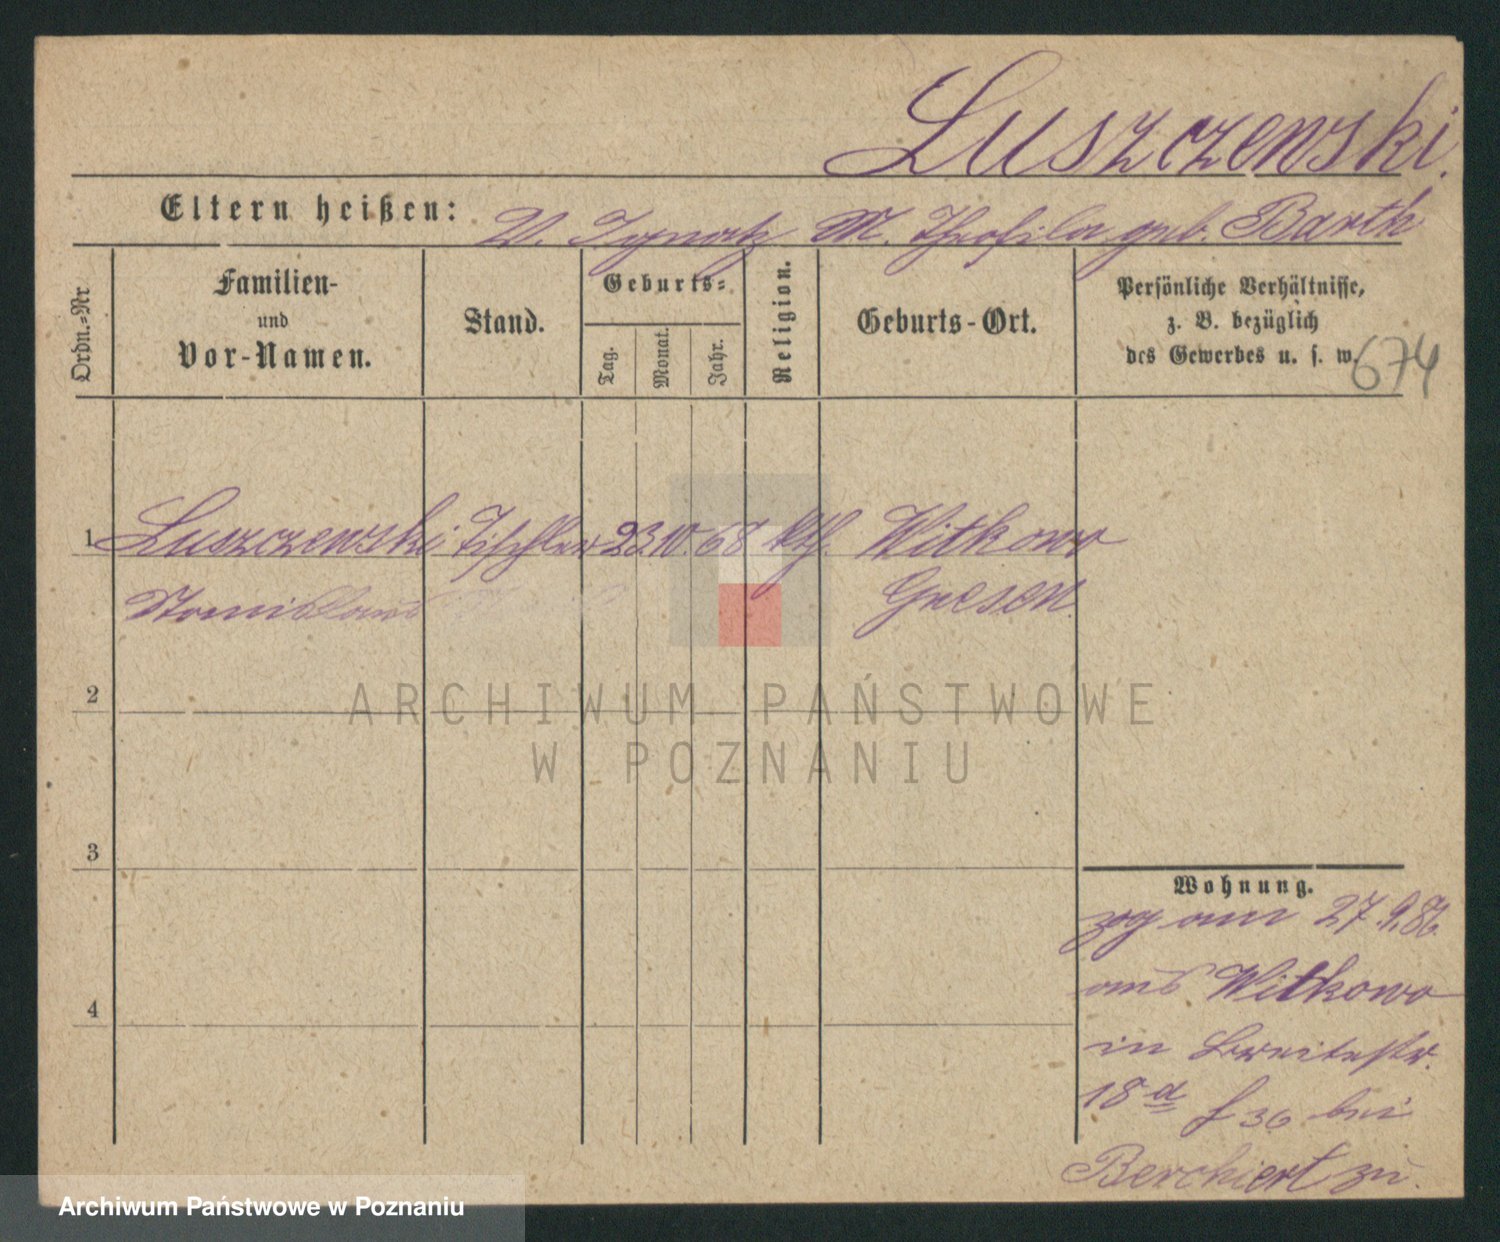 Luszczewski.
Eltern heißen: V. Ignatz M. Theofila geb. Barth
Ordn.=Nr
Familien-
und
Vor-Namen.
Stand.
Geburts=
Tag.
Monat.
Jahr.
Religion.
Geburts-Ort.
Persönliche Verhältnisse,
z. B. bezüglich
des Gewerbes u. s. w.
674
1 Luszczewski Tischler 23. 10. 68 kth. Witkowo
Stanislaus Gnesen
2
ARCHIWUM PAŃSTWOWE
W POZNANIU
3
Wohnung.
zog am 27.9.86
aus Witkowo
4
in Breitestr.
18 d f 36 bei
zu.
Archiwum Państwowe w Poznaniu